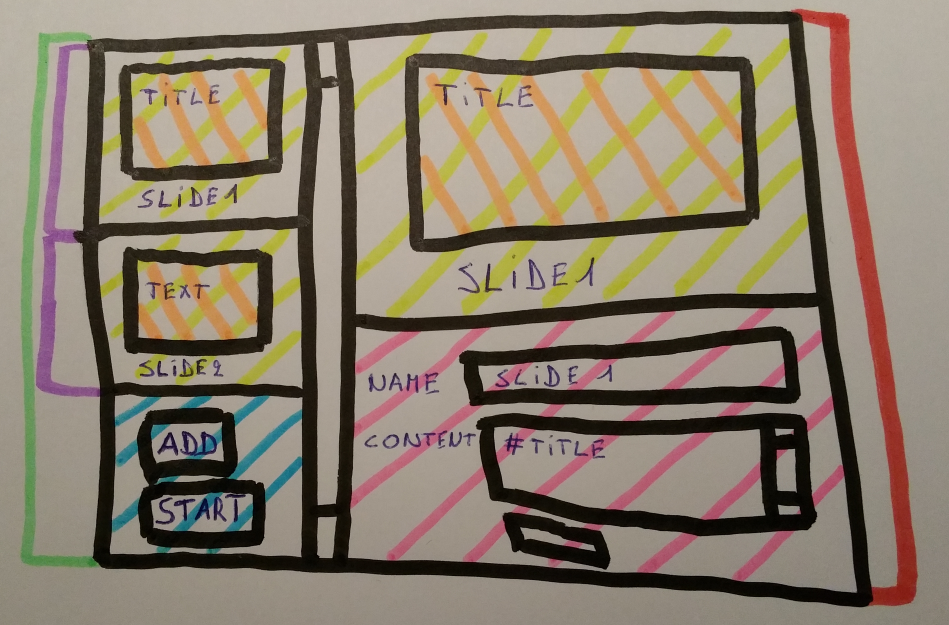 TiTLE
SLiDE1
TEXT
SLiDE2
ADD
START
TiTLE
SLiDE1
NAME
SLiDE 1
CONTENT
#TiTLE